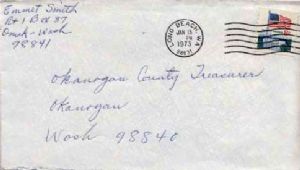 Emmet Smith
Rt 1 Box 37
Omak - Wash
98841
LONG BEACH, WA
JAN 15
PM
1973
98631
Okanogan County Treasurer
Okanogan
Wash 98840